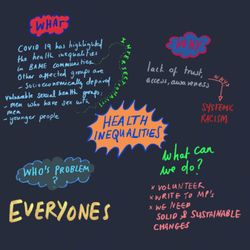 WHAT
COVID 19 has highlighted
the health inequalities
in BAME communities.
Other affected groups are
- Socio-economically deprived
Vulnerable sexual health groups,
- men who have sex with
men
- younger people
lack of trust,
access, awareness
SYSTEMIC
RACISM
HEALTH
INEQUALITIES
WHO'S PROBLEM
?
EVERYONES
what can
we do?
x VOLUNTEER
x WRITE TO MP'S
x WE NEED
SOLID & SUSTAINABLE
CHANGES